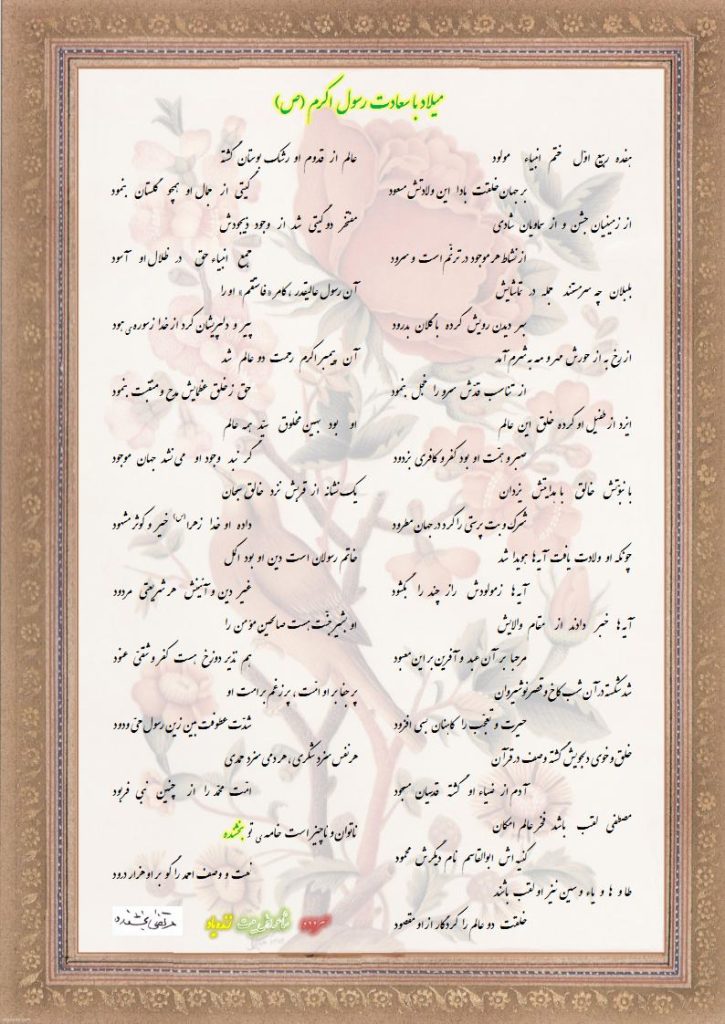 میلاد با سعادت رسول اکرم (ص)
هفده ربیع اول ختم انبیاء مولود
بر جهان خلقت بادا این ولادتش مسعود
از زمینیان جشن و از سماویان شادی
از نشاط هر موجود در ترنّم است و سرود
بلبلان چه سرمستند جمله در تماشایش
بهر دیدن رویش کرده با گلان بدرود
از رخ به از حورش مهر و مه به شرم آمد
از تناسب قدّش سرو را خجل بنمود
ایزد از طفیل او کرده خلق این عالم
صبر و همّت او بود کفر و کافری بزدود
با نبوّتش خالق با هدایتش یزدان
شرک و بت پرستی را کرد در جهان مطرود
چونکه او ولادت یافت آیه‌ها هویدا شد
آیه‌ها زمولودش راز چند را بگشود
آیه‌ها خبر دادند از مقام والایش
مرحبا بر آن عبد و آفرین بر این معبود
شد شکسته در آن شب کاخ و قصر نوشیروان
حیرت و تعجّب را کاهنان بسی افزود
خلق و خوی دلجویش گشته وصف در قرآن
آدم از ضیاء او گشته قدسیان مسجود
مصطفی لقب باشد فخر عالم امکان
کنیه اش ابوالقاسم نام دیگرش محمود
طا و ها و یاء و سین نیز او لقب باشند
خلقت دو عالم را کردگار از او مقصود
عالم از قدوم او رشک بوستان گشته
گیتی از جمال او همچو گلستان بنمود
مفتخر دو گیتی شد از وجود ذیجودش
جمع انبیاء حق در ظلال او آسود
آن رسول عالیقدر، کامر «فاستقم» او را
پیر و دلپریشان کرد از خدا زسوره‌ی هود
آن پیمبر اکرم رحمت دو عالم شد
حق ز خلق عظمایش مدح و منقبت بنمود
او بود بهین مخلوق سیّد همه عالم
گر نبد وجود او می نشد جهان موجود
یک نشانه از قربش نزد خالق سبحان
داده او خدا زهرا(س) خیر و کوثر مشهود
خاتم رسولان است دین او بود اکمل
غیر دین و آئینش هر شریعتی مردود
او بشیر جنّت هست صالحین مؤمن را
هم نذیر دوزخ هست کفر و شقی عنود
پر جفا بر او امّت، پر زغم بر امت او
شدّت عطوفت بین زین رسول حیّ ودود
هر نفس سزد شکری، هر دمی سزد حمدی
امّت محمّد را از چنین نبی فربود
ناتوان و ناچیز است خامه‌ی تو بخشنده
نعت و وصف احمد را گو بر او هزار درود
زنده یاد
مرتضی بخشنده